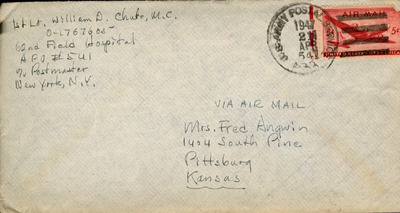 1st Lt. William D. Chute, M.C.
62nd Field Hospital
A.P.O. #541
℅ Postmaster
New York, N.Y.
U.S. ARMY POSTAL
1947
2
APR
541
AIR MAIL
5¢
VIA AIR MAIL
Mrs. Fred Angwin
1404 South Pine
Pittsburg
Kansas